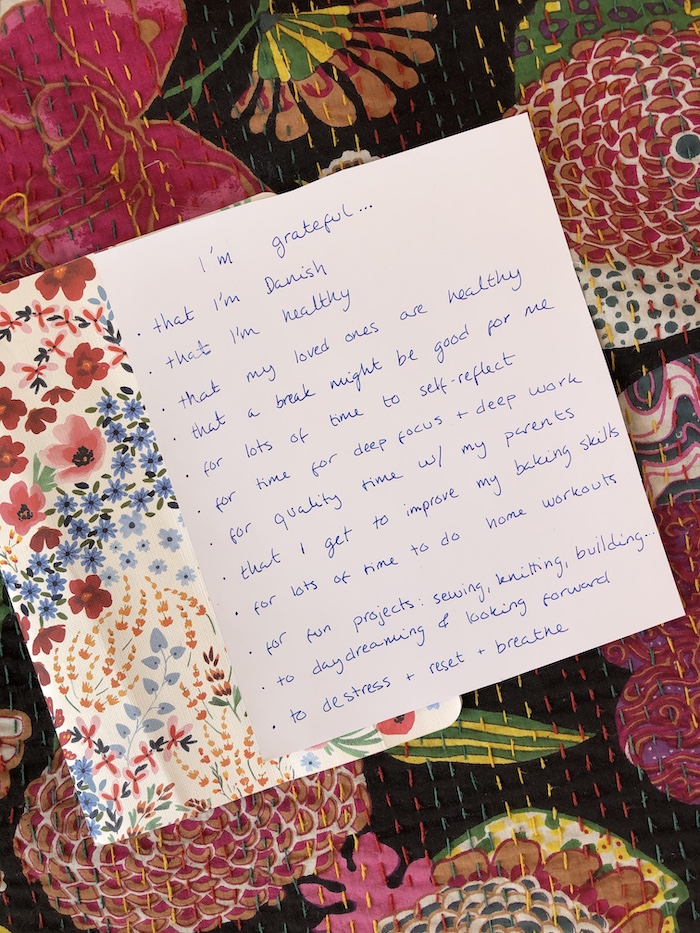 I'm grateful...
· that I'm Danish
· that I'm healthy
· that my loved ones are healthy
· that a break might be good for me
· for lots of time to self-reflect
· for time for deep focus + deep work
· for quality time w/ my parents
· that I get to improve my baking skills
· for lots of time to do home workouts
· for fun projects: sewing, knitting, building...
· to daydreaming & looking forward
· to destress + reset + breathe